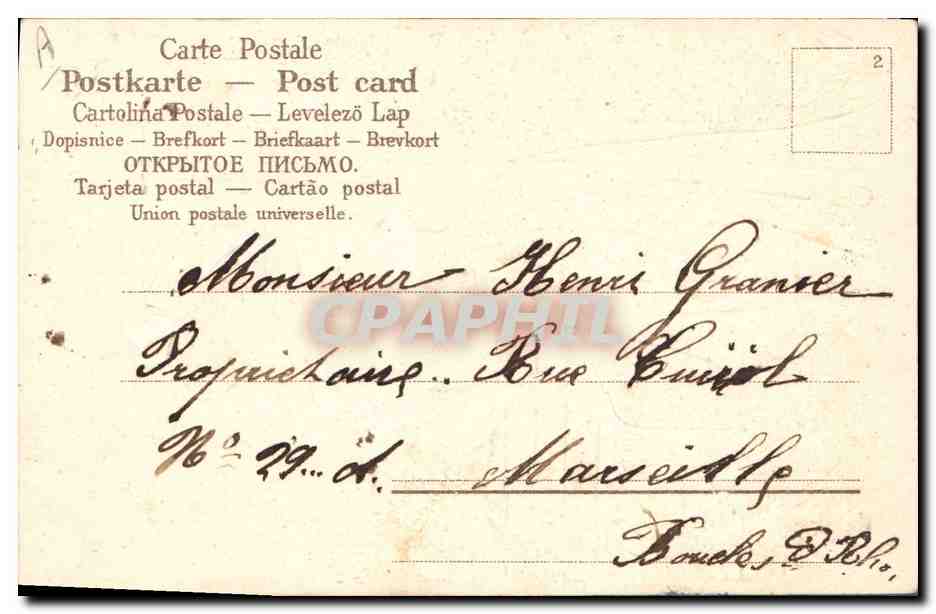 Carte Postale
Postkarte — Post card
Cartolina Postale — Levelező Lap
Dopisnice — Brefkort — Briefkaart — Brevkort
ОТКРЫТОЕ ПИСЬМО.
Tarjeta postal — Cartão postal
Union postale universelle.
2
A
Monsieur Henri Granier
CPAPHIL
Propriétaire.. Rue
Nº 29... A. Marseille
Bouches D Rho,